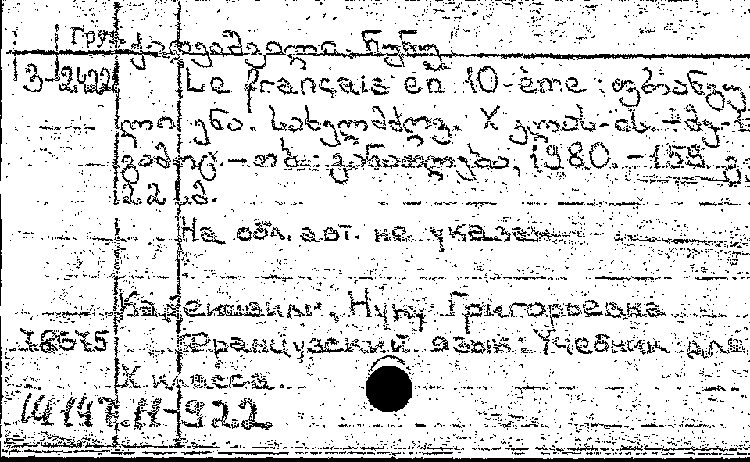 Груз
ქადეიშვილი, ნუნუ
3-2422 Le français en 10-ème : ფრანგუ
ლი ენა. სახელმძღვ. X კლას-ის. - მე-
გამოც. - თბ.: განათლება, 1980. - 159 გვ
22 სმ.
На обл. авт. не указан
Кадеишвили, Нуну Григорьевна
Французский язык: Учебник для
X класса.
14147.11-922